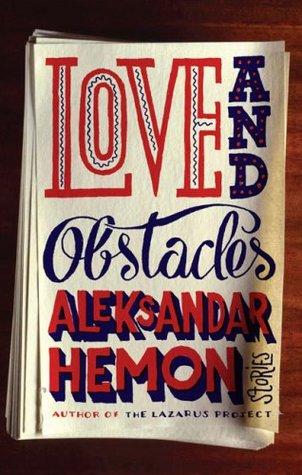 LOVE AND
Obstacles
ALEKSANDAR
HEMON
STORIES
AUTHOR OF THE LAZARUS PROJECT